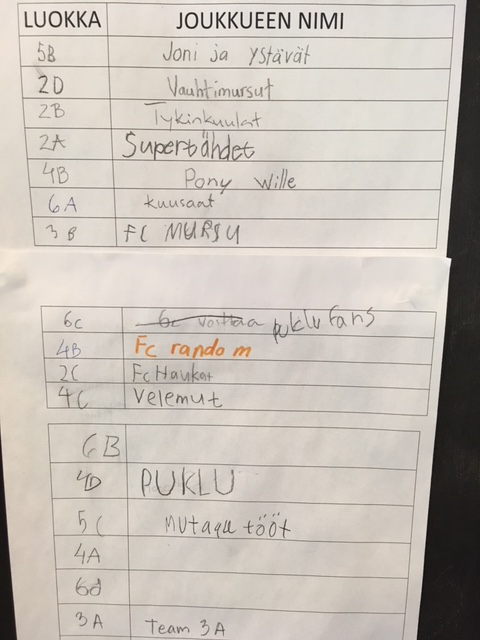 LUOKKA JOUKKUEEN NIMI
5B Joni ja ystävät
2D Vauhtimursut
2B Tykinkuulat
2A Supertähdet
4B Pony Wille
6A kuusaat
3B FC MURSU
6c 6c voittaa puklu fans
4B Fc random
2C Fc Haukat
4C Velemut
6B
4D PUKLU
5C
4A
6d
3A Team 3A